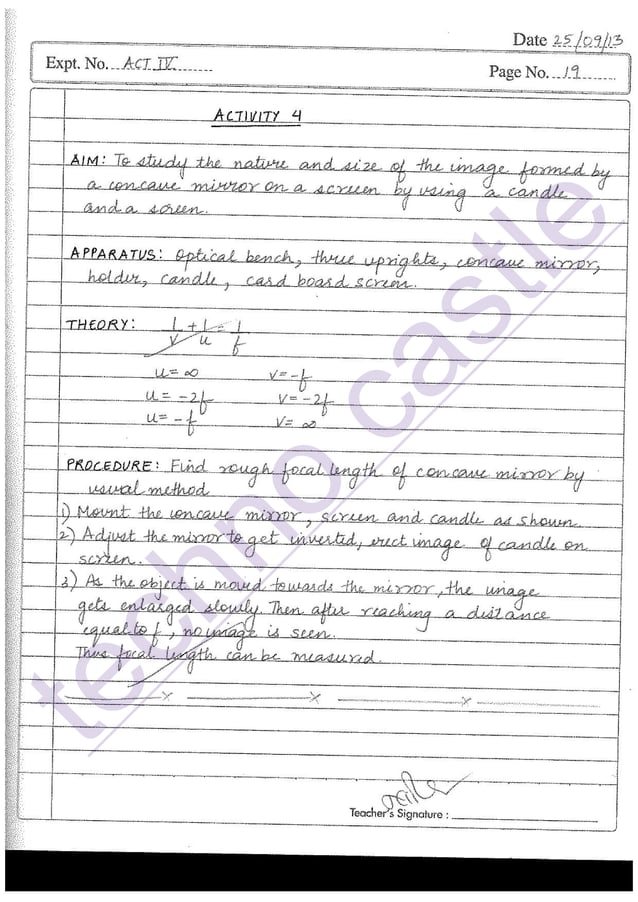 Date 25/09/13
Expt. No. ACT IV
Page No. 19
ACTIVITY 4
AIM: To study the nature and size of the image formed by
a concave mirror on a screen by using a candle
and a screen.
APPARATUS: Optical bench, three uprights, concave mirror,
holder, candle, card board screen.
THEORY: 1/v + 1/u = 1/f
u = ∞ v = -f
u = -2f v = -2f
u = -f v = ∞
PROCEDURE: Find rough focal length of concave mirror by
usual method
1) Mount the concave mirror, screen and candle as shown
2) Adjust the mirror to get inverted, erect image of candle on
screen.
3) As the object is moved towards the mirror, the image
gets enlarged slowly. Then after reaching a distance
equal to f, no image is seen.
Thus focal length can be measured.
techno castle
Teacher's Signature :